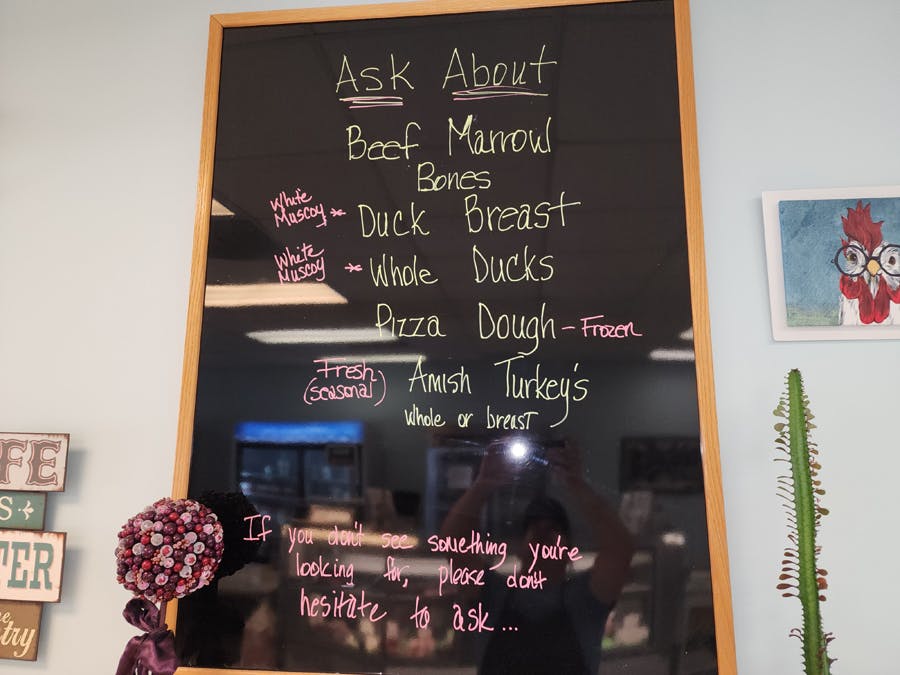 Ask About
Beef Marrow
Bones
White
Muscoy * Duck Breast
White
Muscoy * Whole Ducks
Pizza Dough - Frozen
Fresh
(seasonal) Amish Turkey's
whole or breast
If you don't see something you're
looking for, please don't
hesitate to ask...
FE
S
TER
try